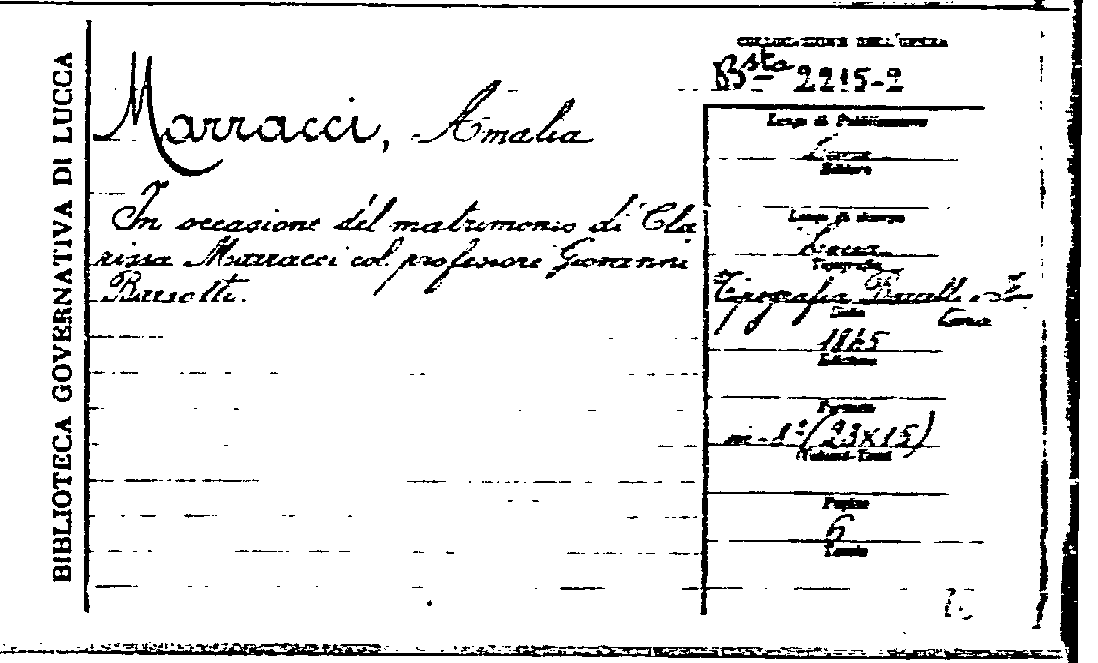 BIBLIOTECA GOVERNATIVA DI LUCCA
COLLOCAZIONE DELL'OPERA
Bsta 2215-2
Marracci, Amalia
In occasione del matrimonio di Cla
rissa Marracci col professore Giovanni
Barsotti.
Luogo di Pubblicazione
Editore
Luogo di stampa
Lucca
Tipografia
Tipografia
Data
Edizione
Formato
in-8° (23x15)
Volumi-Tomi
Pagine
6
Tavole